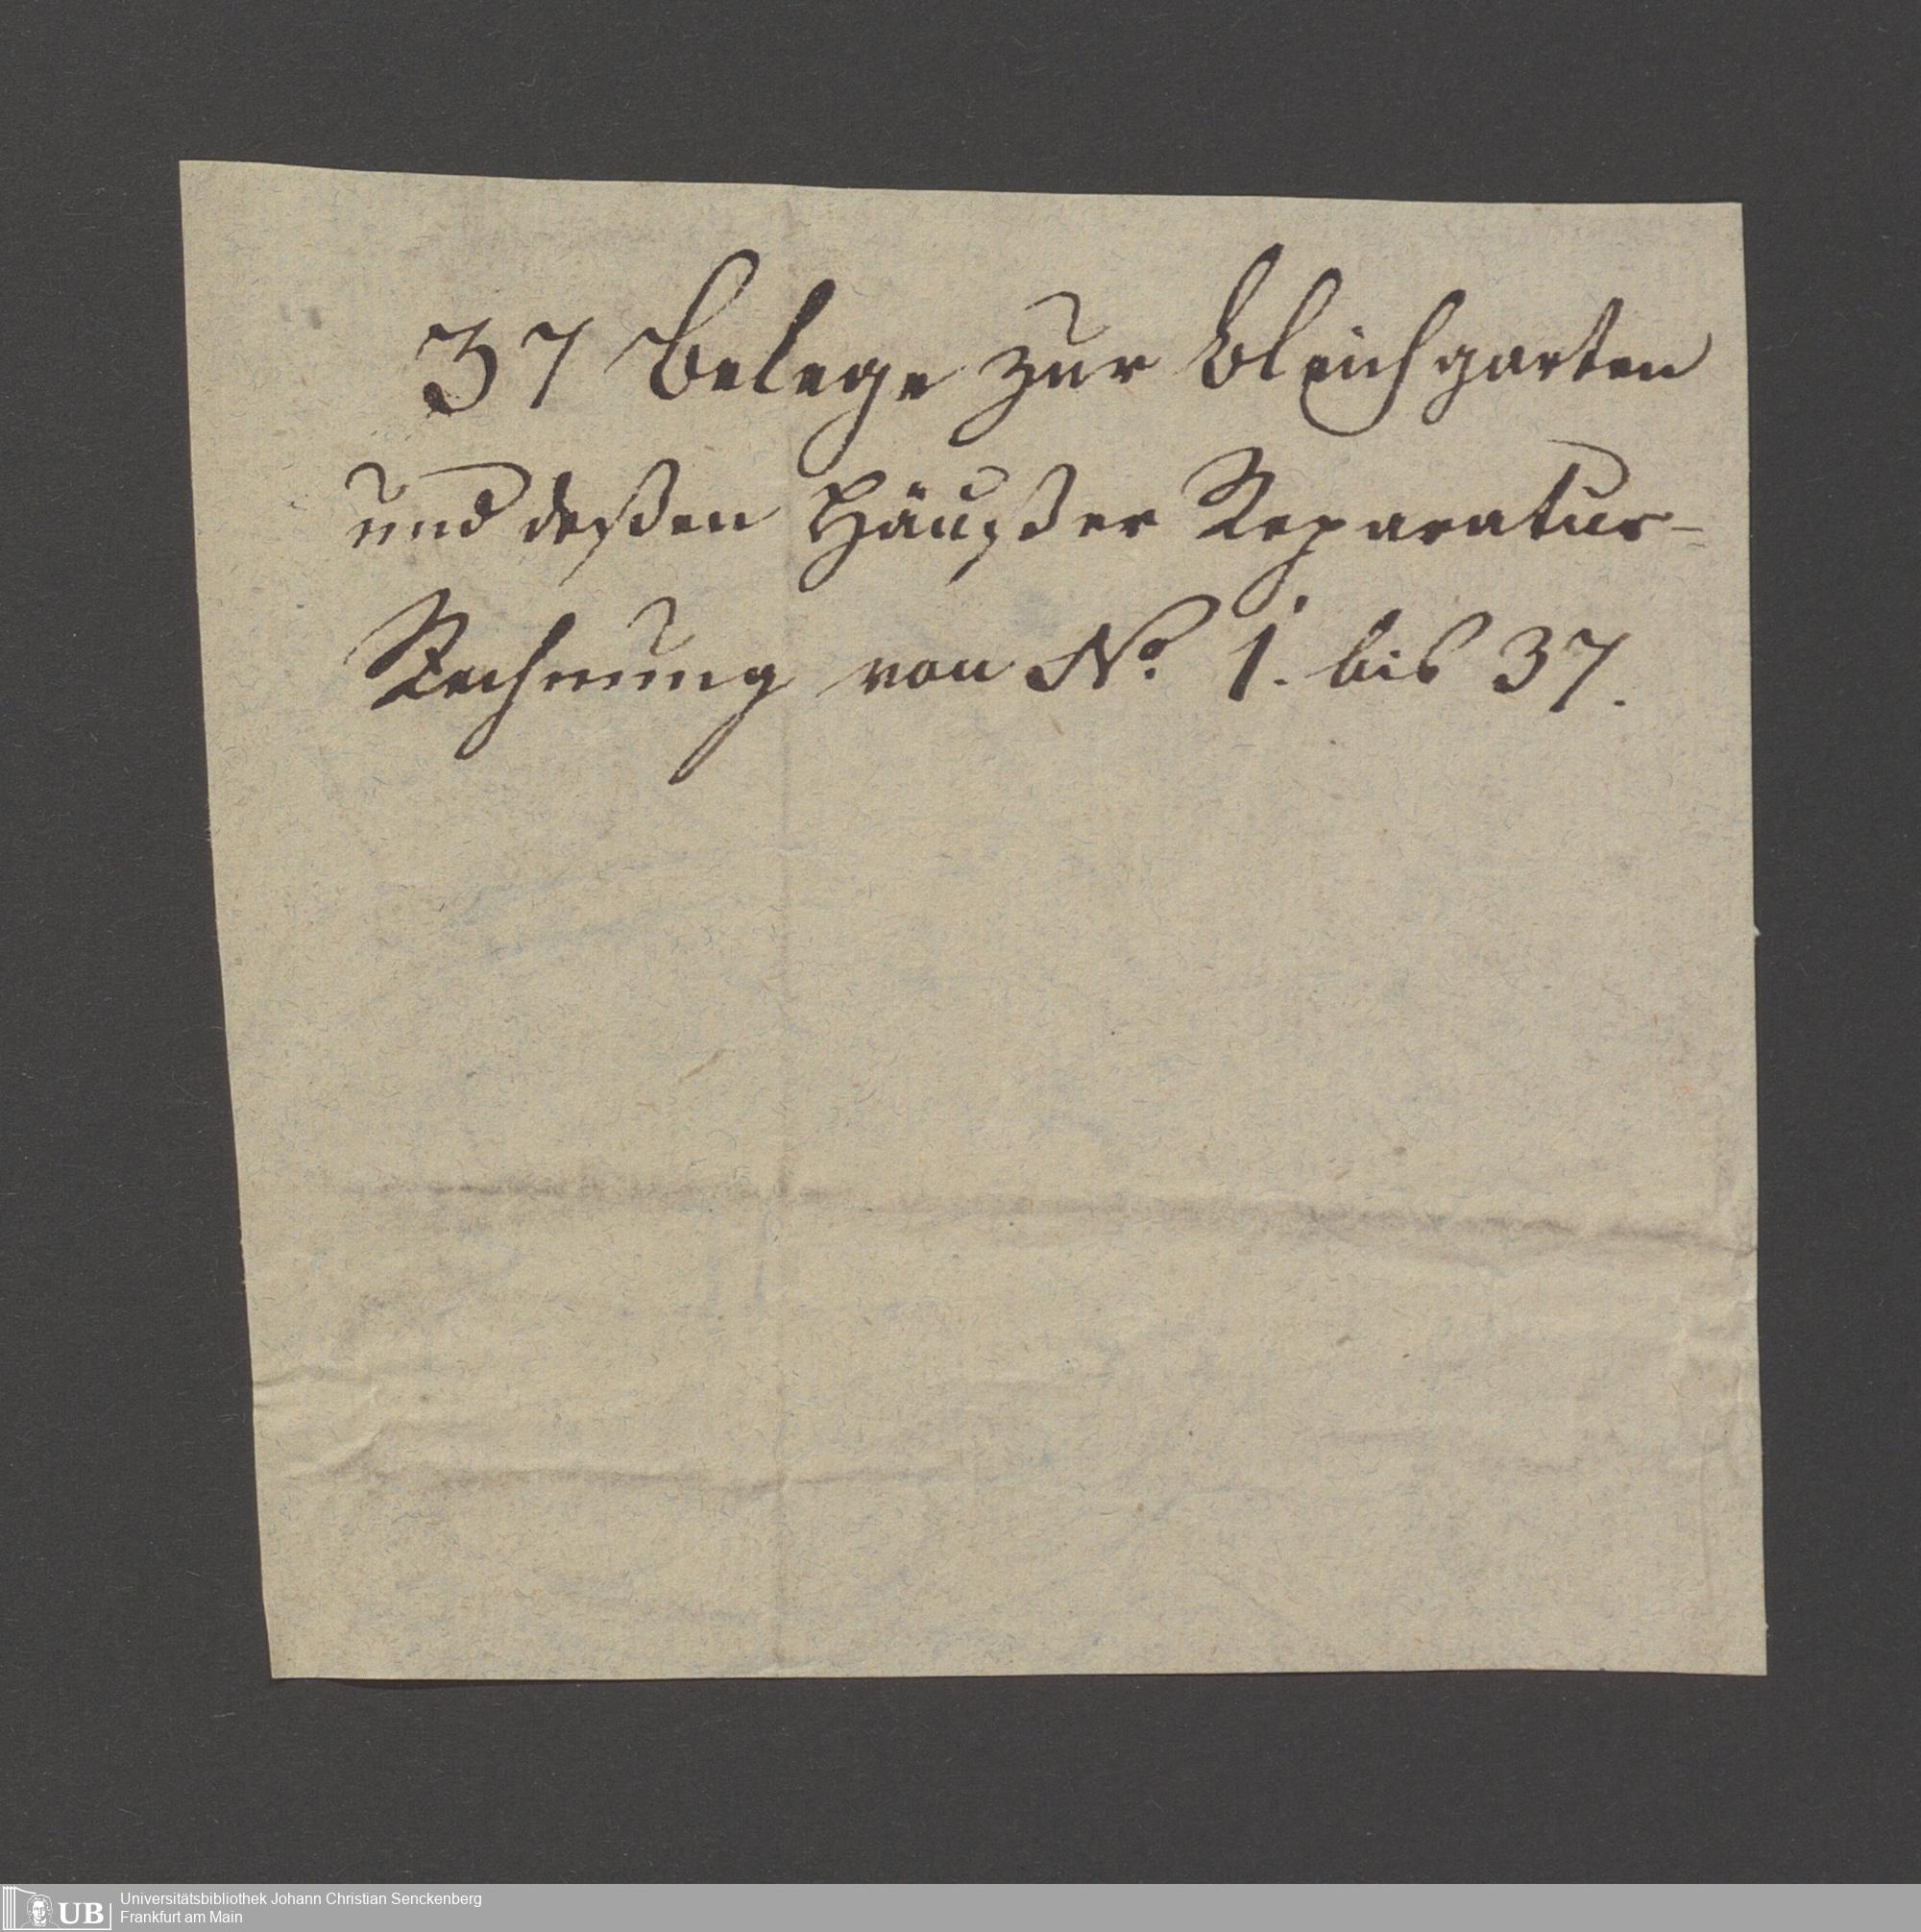 37 Belege zur Bleichgarten
und deßen Häußer Reparatur-
Rechnung von No. 1. bis 37.
UB
Universitätsbibliothek Johann Christian Senckenberg
Frankfurt am Main